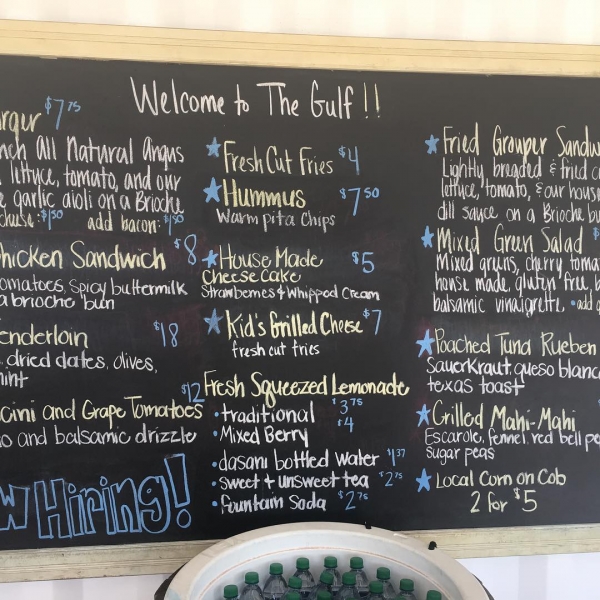 Welcome to The Gulf!!
$7 75
All Natural Angus
lettuce, tomato, and our
garlic aioli on a Brioche
cheese: $1.50 add bacon: $1.50
Chicken Sandwich $8
tomatoes, spicy buttermilk
a brioche bun
tenderloin $18
, dried dates, olives,
mint
$12
and Grape Tomatoes
and balsamic drizzle
Hiring!
Fresh Cut Fries $4
Hummus $7 50
Warm pita Chips
House Made $5
Cheesecake
Strawberries & Whipped Cream
Kid's Grilled Cheese $7
fresh cut fries
Fresh Squeezed Lemonade
• traditional $3 75
• Mixed Berry $4
• dasani bottled water $1 37
• sweet & unsweet tea $2 75
• fountain Soda $2 75
Fried Grouper
Lightly breaded & fried
lettuce, tomato, & our house
dill sauce on a Brioche
Mixed Green Salad $
Mixed greens, cherry
house made gluten free,
balsamic vinaigrette. • add
Poached Tuna Rueben
Sauerkraut queso
texas toast
Grilled Mahi-Mahi
Escarole, fennel red bell
sugar peas
Local Corn on Cob
2 for $5